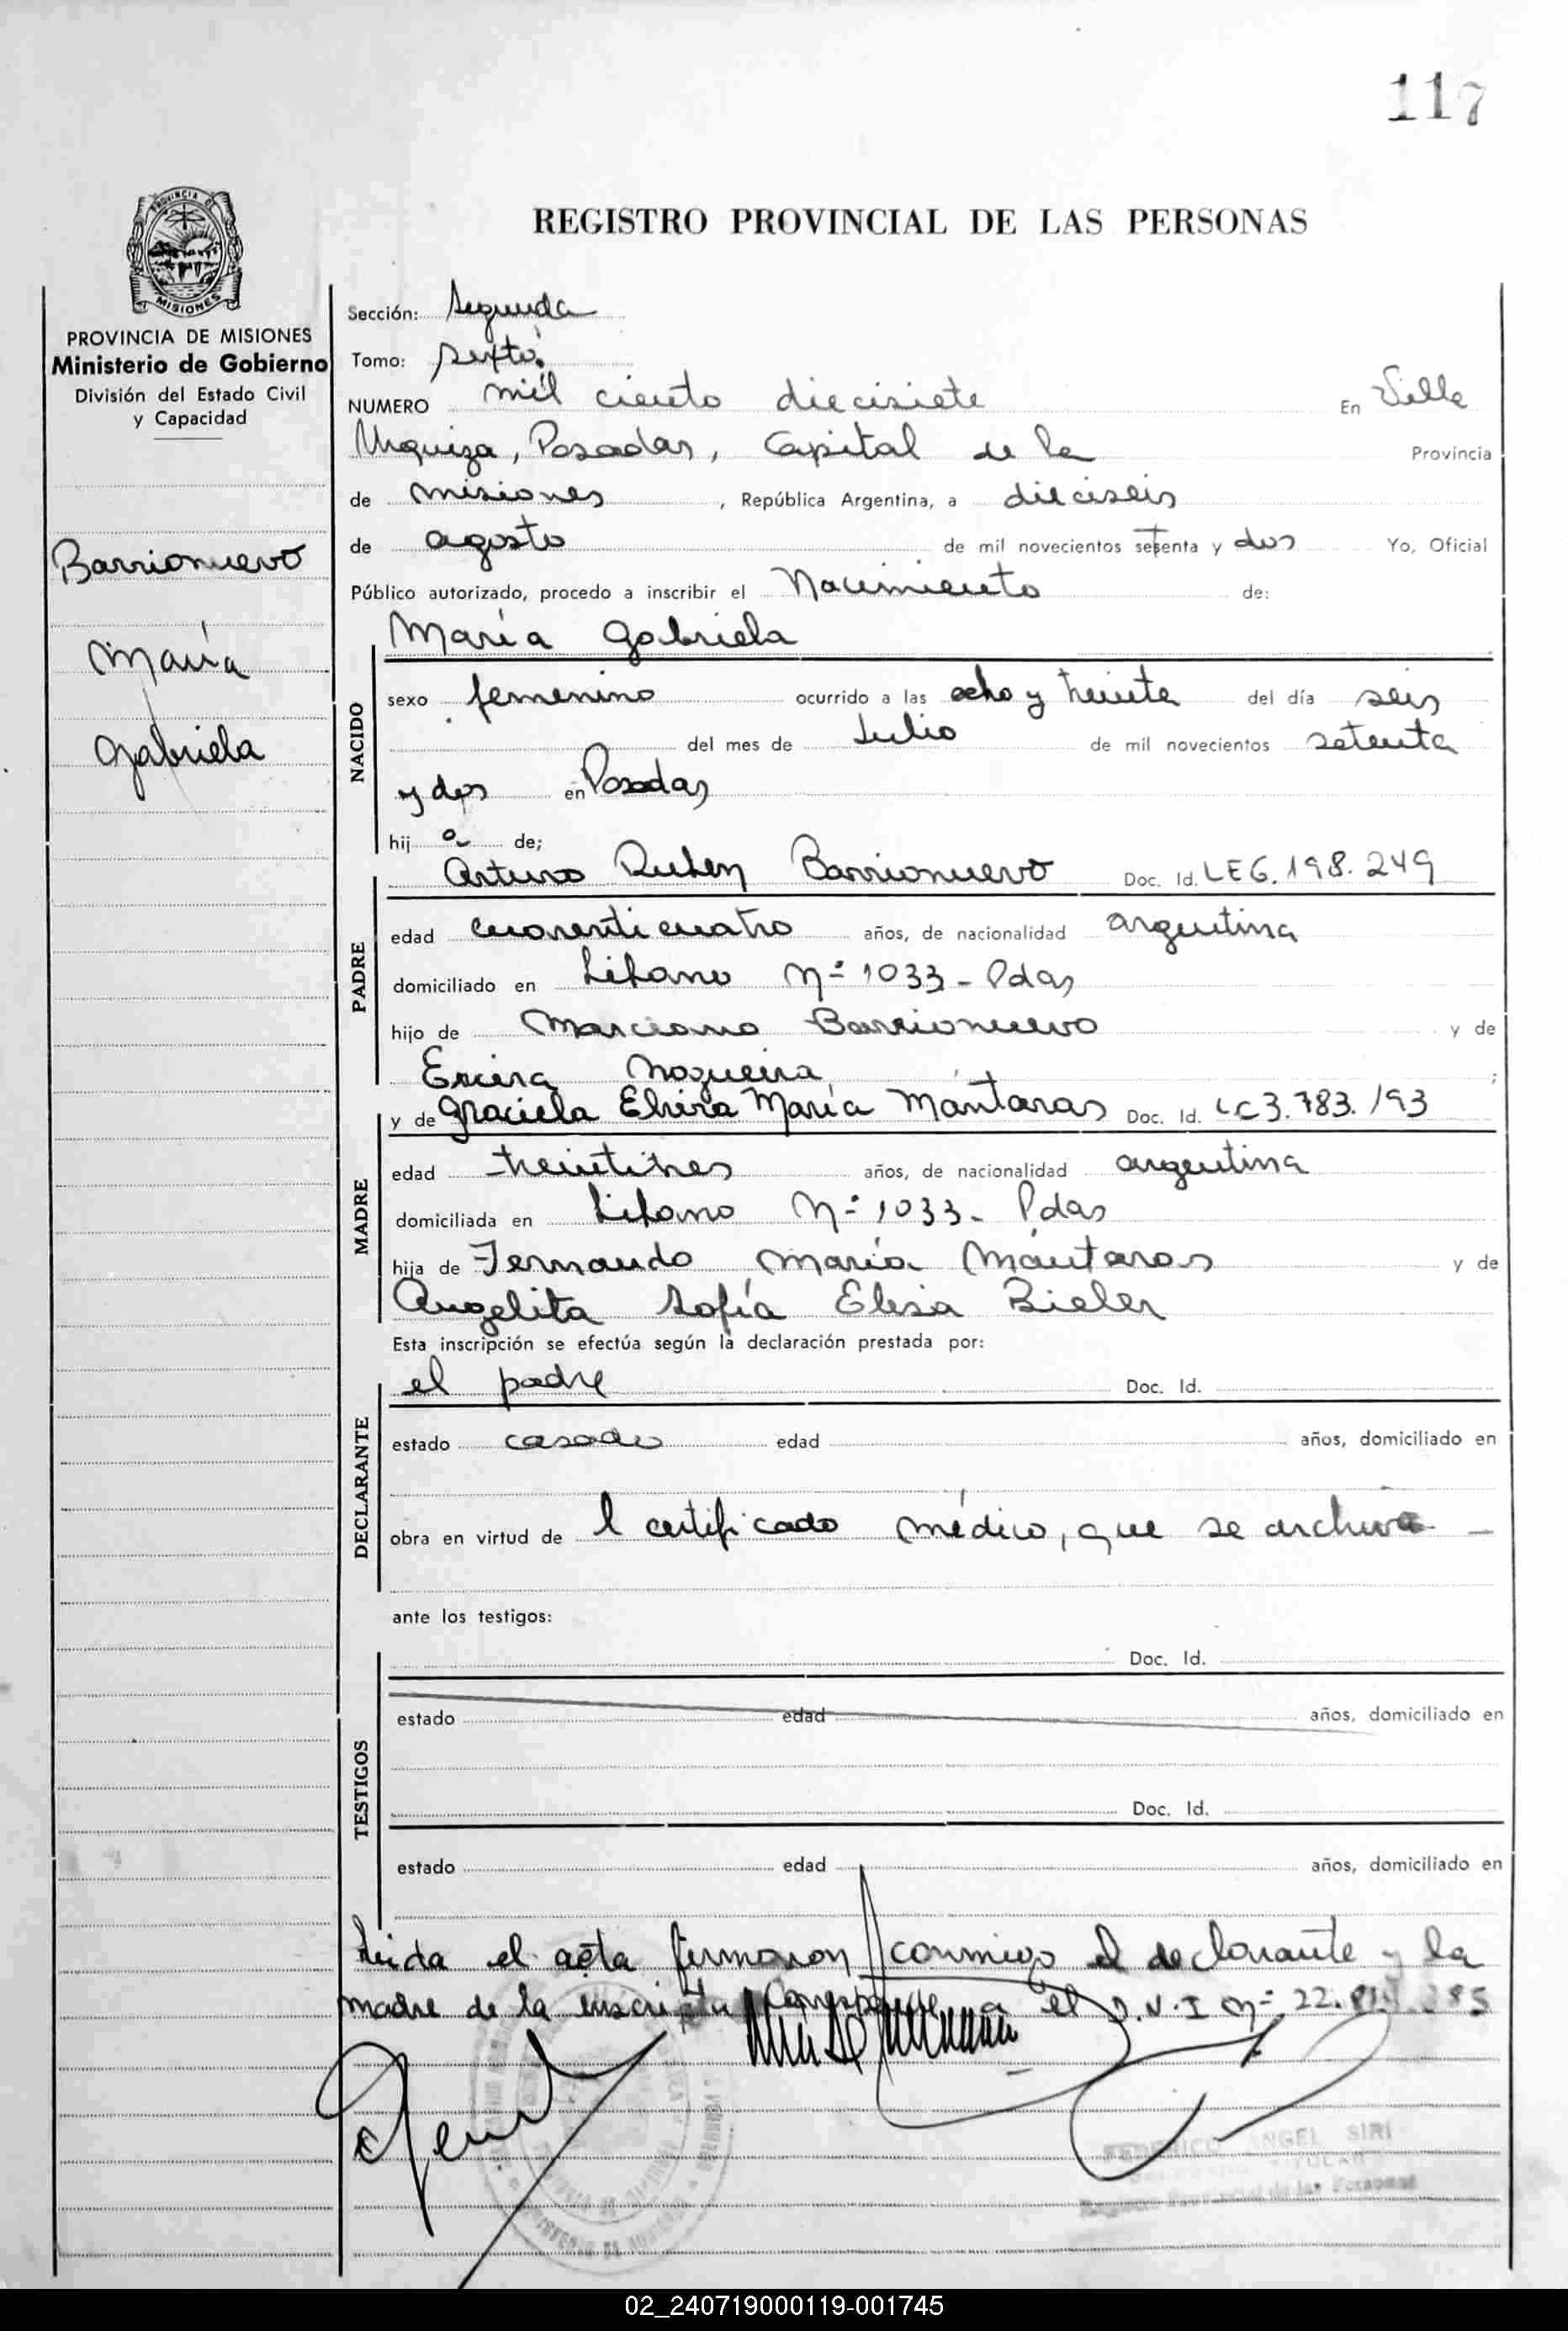 117
REGISTRO PROVINCIAL DE LAS PERSONAS
PROVINCIA DE MISIONES
Ministerio de Gobierno
División del Estado Civil
y Capacidad
Barrionuevo
María
Gabriela
Sección: Segunda
Tomo: Sexto
NUMERO mil ciento diecisiete En Villa
Urquiza, Posadas, Capital de la Provincia
de Misiones, República Argentina, a dieciseis
de agosto de mil novecientos setenta y dos Yo, Oficial
Público autorizado, procedo a inscribir el Nacimiento de:
María Gabriela
NACIDO
sexo femenino ocurrido a las ocho y treinta del día seis
del mes de Julio de mil novecientos setenta
y dos en Posadas
hij a de;
Arturo Ruben Barrionuevo Doc. Id. LE 6.198.249
PADRE
edad cuarenticuatro años, de nacionalidad argentina
domiciliado en Nº 1033 - Pdas
hijo de Marciano Barrionuevo y de
Nogueira;
y de Graciela Elvira María Mántaras Doc. Id. LC 3.783.193
MADRE
edad treintitres años, de nacionalidad argentina
domiciliada en Nº 1033 - Pdas
hija de Fernando María Mántaras y de
Angelita Sofía Elisa Bieler
Esta inscripción se efectúa según la declaración prestada por:
el padre Doc. Id.
DECLARANTE
estado casado edad años, domiciliado en
obra en virtud de l certificado médico, que se archiva -
ante los testigos:
Doc. Id.
TESTIGOS
estado edad años, domiciliado en
Doc. Id.
estado edad años, domiciliado en
leida el acta firmaron conmigo el declarante y la
madre de la inscripta Corresponde a el D.N.I nº 22.
FEDERICO ANGEL SIRI
TITULAR
Registro Provincial de las Personas
02_240719000119-001745